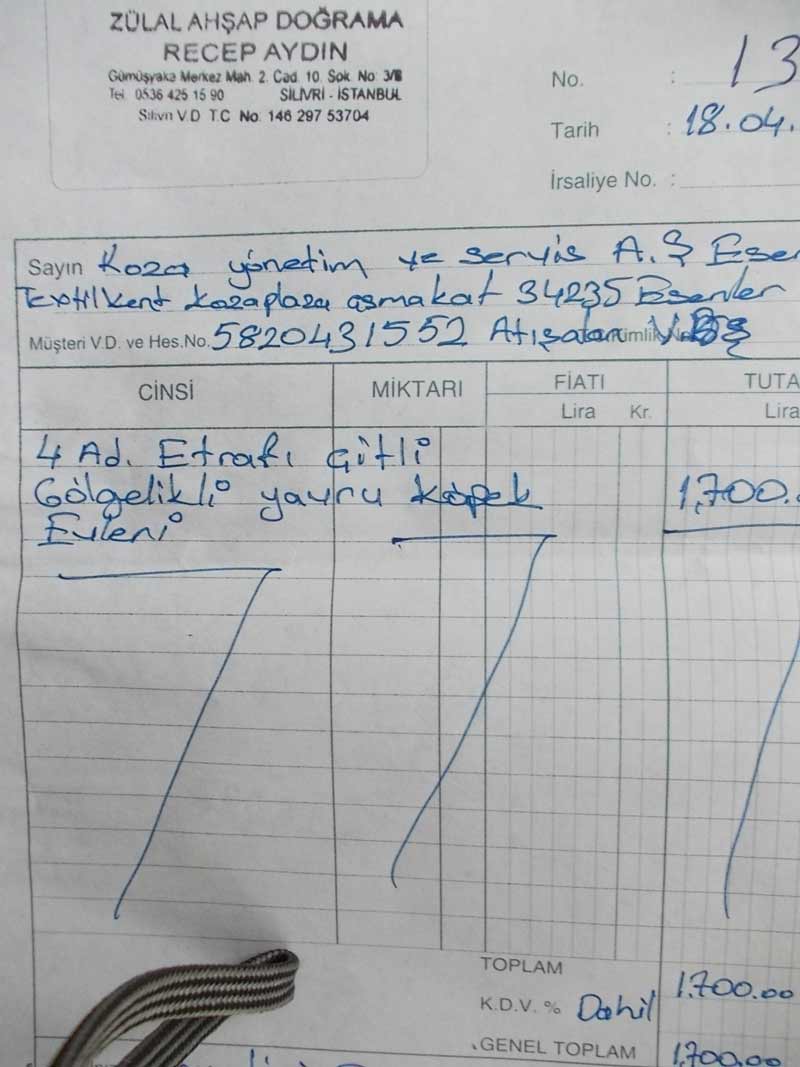 ZÜLAL AHŞAP DOĞRAMA
RECEP AYDIN
Gümüşyaka Merkez Mah. 2. Cad. 10. Sok. No: 3/B
Tel: 0536 425 15 90 SİLİVRİ - İSTANBUL
Silivri V.D. T.C No: 146 297 53704
No. : 13
Tarih : 18.04.
İrsaliye No. :
Sayın Koza yönetim ve servis A.Ş Esen
Textilkent kozaplaza asmakat 34235 Esenler
Müşteri V.D. ve Hes.No. 5820431552 Atışalan
CİNSİ MİKTARI FİATI TUTA
Lira Kr. Lira
4 Ad. Etrafı çitli
Gölgelikli yavru köpek 1,700.
Evleri
TOPLAM 1.700.00
K.D.V. % Dahil
GENEL TOPLAM 1,700.00